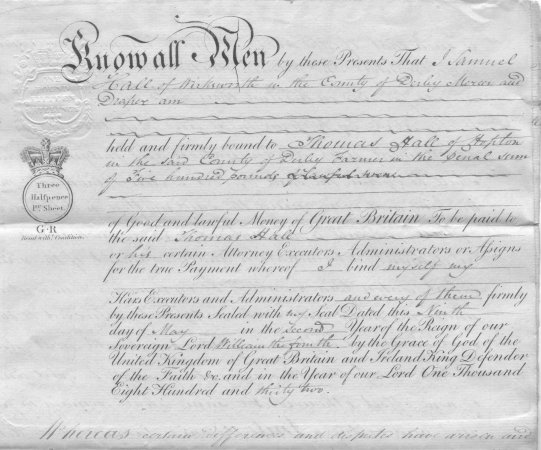 Know all Men by these Presents That I Samuel
Hall of Wirksworth in the County of Derby Mercer and
Draper am
held and firmly bound to Thomas Hall of Hopton
in the said County of Derby Farmer in the Penal Sum
of Five hundred pounds
of Good and lawful Money of Great Britain To be paid to
the said Thomas Hall
or his certain Attorney Executors Administrators or Assigns
for the true Payment whereof I bind myself my
Heirs Executors and Administrators and every of them firmly
by these Presents Sealed with my Seal Dated this Ninth
day of May in the Second Year of the Reign of our
Sovereign Lord William the fourth by the Grace of God of the
United Kingdom of Great Britain and Ireland King Defender
of the Faith &c and in the Year of our Lord One Thousand
Eight Hundred and thirty two.
Whereas certain differences and disputes have arisen and
Three
Halfpence
Pr. Sheet.
G·R